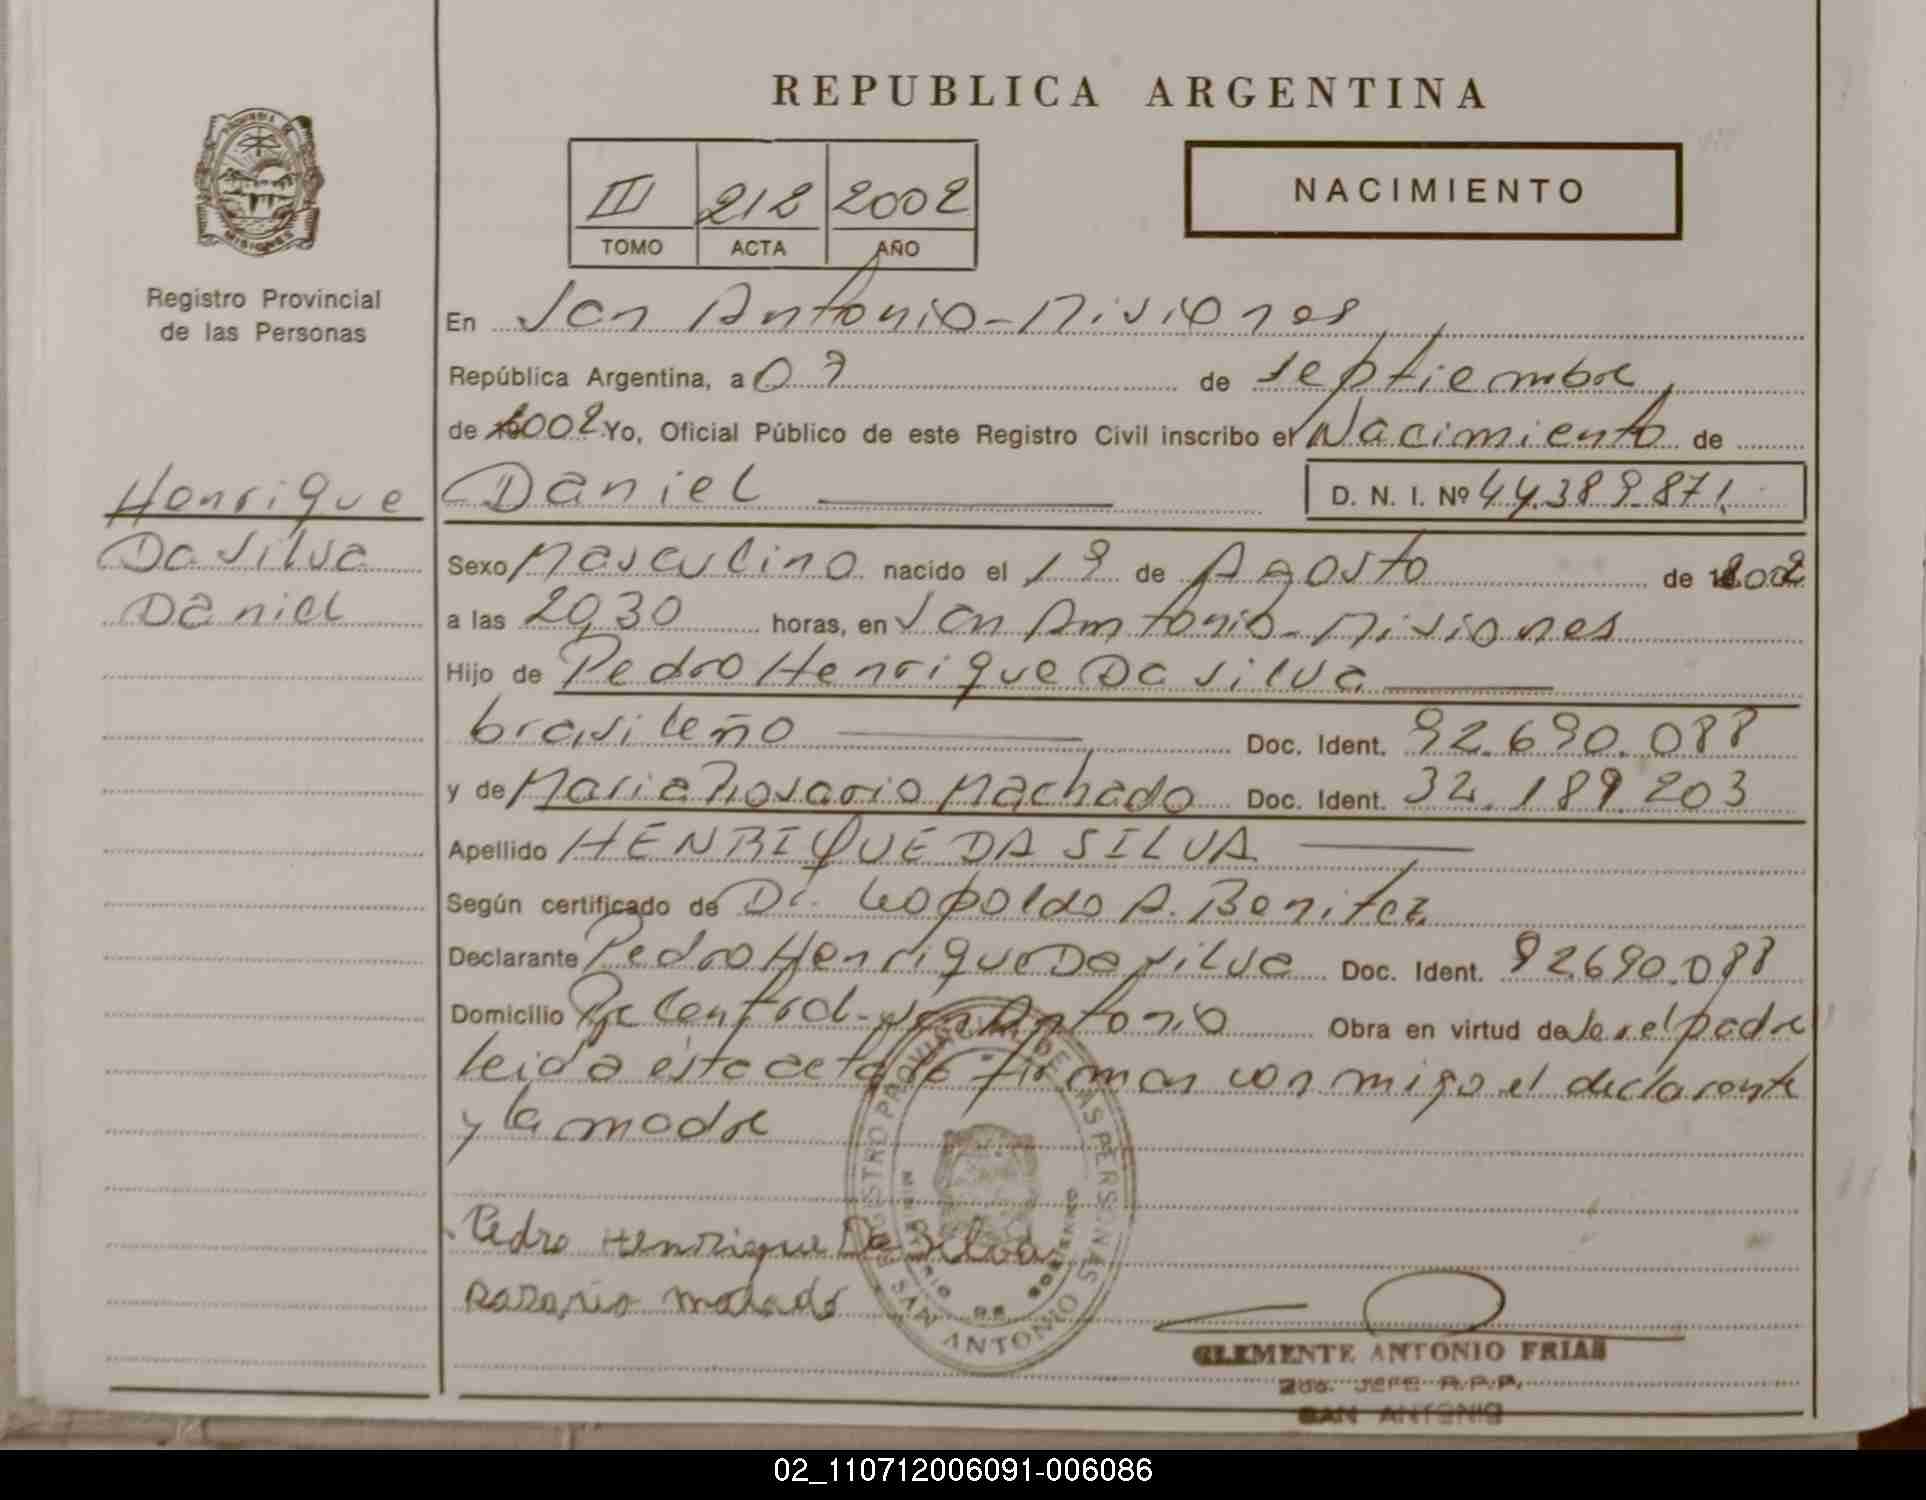 REPUBLICA ARGENTINA
PROVINCIA DE MISIONES
Registro Provincial
de las Personas
III 212 2002
TOMO ACTA AÑO
NACIMIENTO
En San Antonio - Misiones
República Argentina, a 07 de septiembre
de 2002 Yo, Oficial Público de este Registro Civil inscribo el Nacimiento de
Daniel D. N. I. Nº 44.389.871
Henrique
Da Silva
Daniel
Sexo Masculino nacido el 19 de Agosto de 2002
a las 20,30 horas, en San Antonio - Misiones
Hijo de Pedro Henrique Da Silva
brasileño Doc. Ident. 92.690.088
y de Maria Rosario Machado Doc. Ident. 32.189.203
Apellido HENRIQUE DA SILVA
Según certificado de Dr. Leopoldo A. Benitez
Declarante Pedro Henrique Da Silva Doc. Ident. 92690.088
Domicilio Pje Central - San Antonio Obra en virtud de ser el padre
leida esta acta la firman conmigo el declarante
y la madre
REGISTRO PROVINCIAL DE LAS PERSONAS
MINISTERIO DE GOBIERNO
SAN ANTONIO
Pedro Henrique Da Silva
Rosario Machado
CLEMENTE ANTONIO FRIAS
2do. JEFE R.P.P.
SAN ANTONIO
02_110712006091-006086